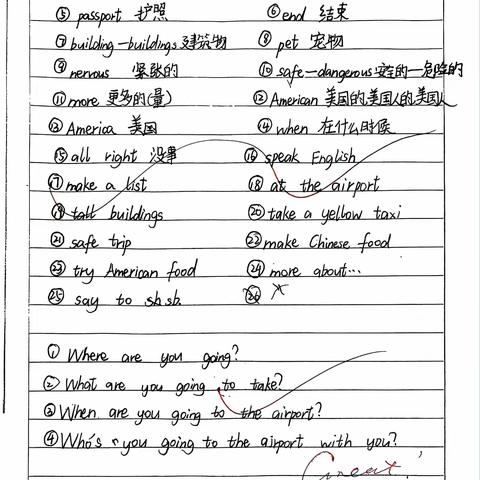 ⑤ passport 护照 ⑥ end 结束
⑦ building—buildings 建筑物 ⑧ pet 宠物
⑨ nervous 紧张的 ⑩ safe—dangerous 安全的—危险的
⑪ more 更多的(量) ⑫ American 美国的,美国人的,美国人
⑬ America 美国 ⑭ when 在什么时候
⑮ all right 没事 ⑯ speak English
⑰ make a list ⑱ at the airport
⑲ tall buildings ⑳ take a yellow taxi
㉑ safe trip ㉒ make Chinese food
㉓ try American food ㉔ more about...
㉕ say to sb.sb. ㉖
① Where are you going?
② What are you going to take?
③ When are you going to the airport?
④ Who's you going to the airport with you?
Great!